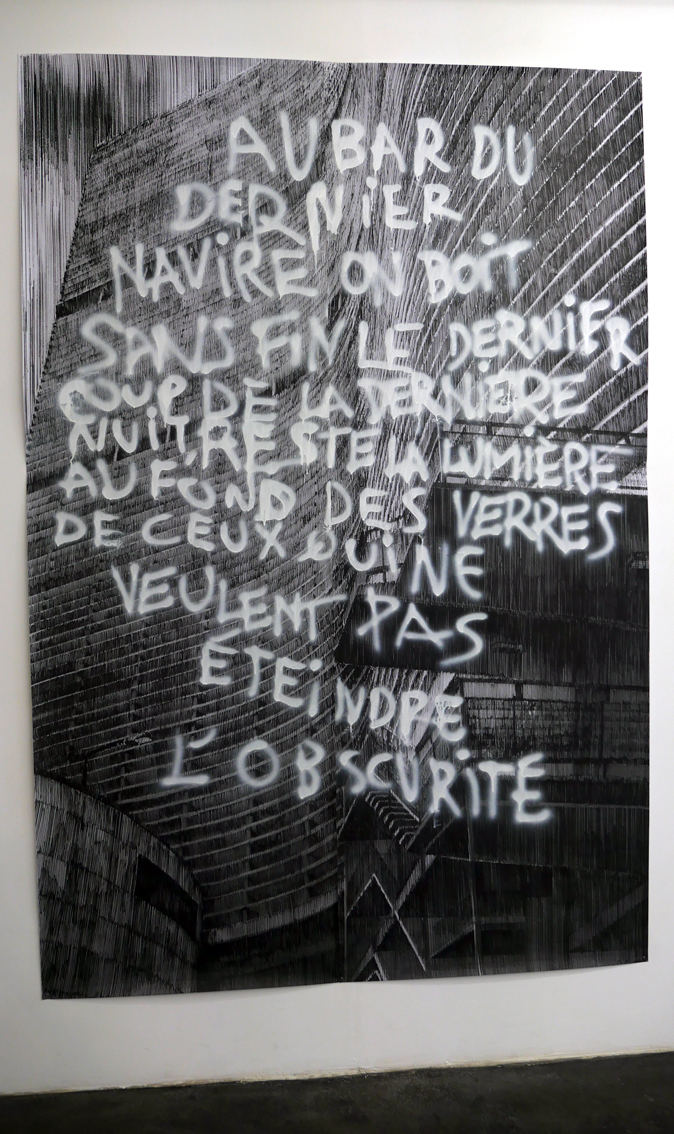 AU BAR DU
DERNiER
NAViRE ON BOiT
SANS FiN LE DERNiER
COUP DE LA DERNiÈRE
NUiT, RESTE LA LUMiÈRE
AU FOND DES VERRES
DE CEUX QUi NE
VEULENT PAS
ÉTEiNDRE
L'OBSCURiTÉ